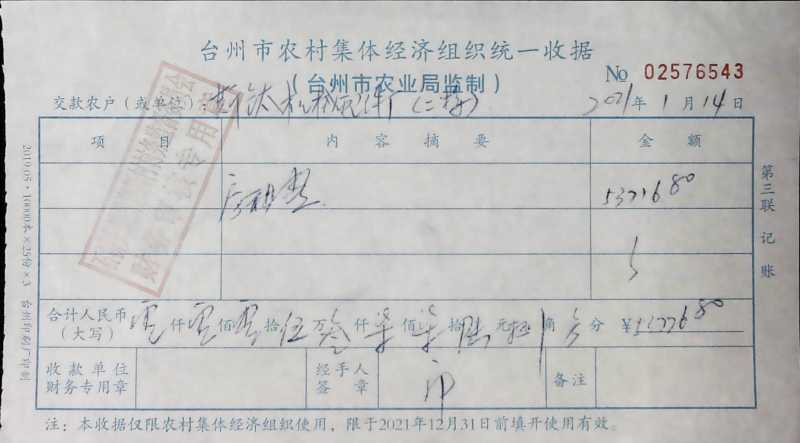 台州市农村集体经济组织统一收据
(台州市农业局监制)
No 02576543
交款农户(或单位): 机械配件厂(二楼) 2021年1月14日
项目 内容摘要 金额
房租费 53776 80
合计人民币(大写) 零仟零佰零拾伍万叁仟柒佰柒拾陆元捌角零分 ¥53776 80
收款单位财务专用章 经手人签章 备注
注：本收据仅限农村集体经济组织使用，限于2021年12月31日前填开使用有效。
第三联 记账
2019.05·10000本×25份×3 台州印刷厂印制
财务审核专用章